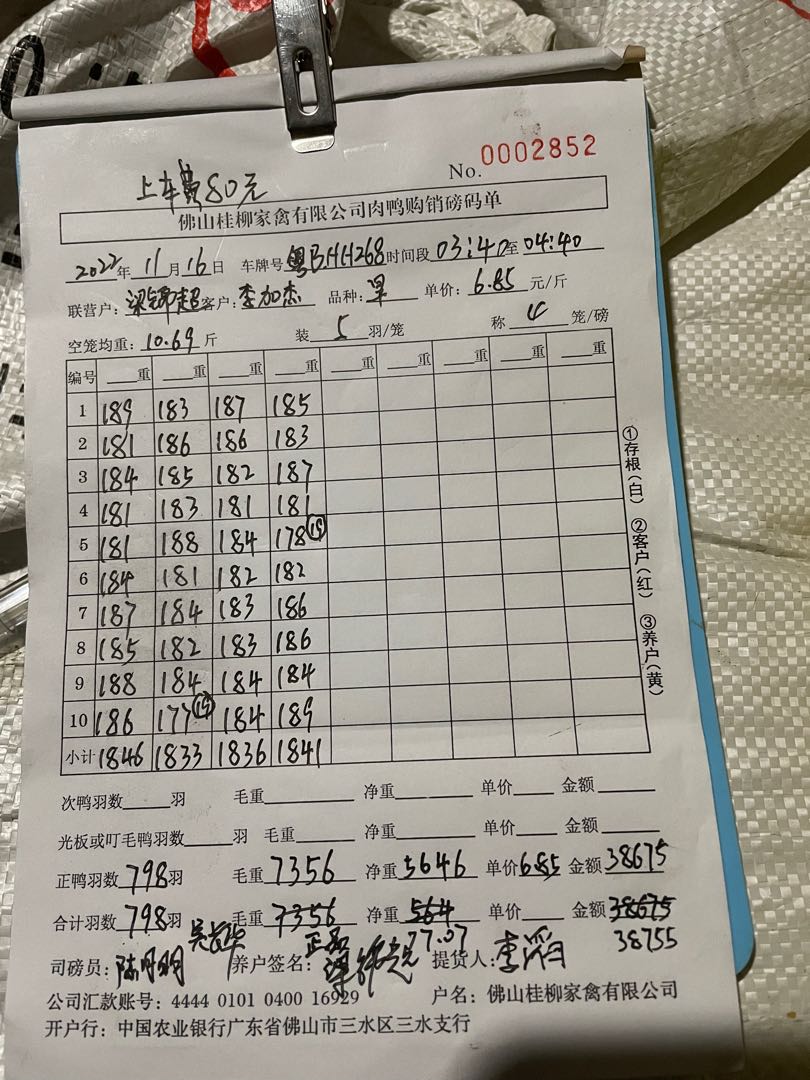 No. 0002852
上车费80元
佛山桂柳家禽有限公司肉鸭购销磅码单
2022年11月16日 车牌号粤BHH268时间段03:40至04:40
联营户:梁锦超客户:李加杰 品种:果 单价:6.85元/斤
空笼均重:10.69斤 装5羽/笼 称4笼/磅
编号 重 重 重 重 重 重 重 重 重
1 189 183 187 185
2 181 186 186 183
3 184 185 182 187
4 181 183 181 181
5 181 188 184 178 19
6 184 181 182 182
7 187 184 183 186
8 185 182 183 186
9 188 184 184 184
10 186 177 19 184 189
小计 1846 1833 1836 1841
①存根(白) ②客户(红) ③养户(黄)
次鸭羽数 羽 毛重 净重 单价 金额
光板或叮毛鸭羽数 羽 毛重 净重 单价 金额
正鸭羽数798羽 毛重7356 净重5646 单价6.85 金额38675
合计羽数798羽 毛重7356 净重564 单价 金额38675
77.07 38755
司磅员: 养户签名: 提货人:李
公司汇款账号:4444 0101 0400 16929 户名:佛山桂柳家禽有限公司
开户行:中国农业银行广东省佛山市三水区三水支行